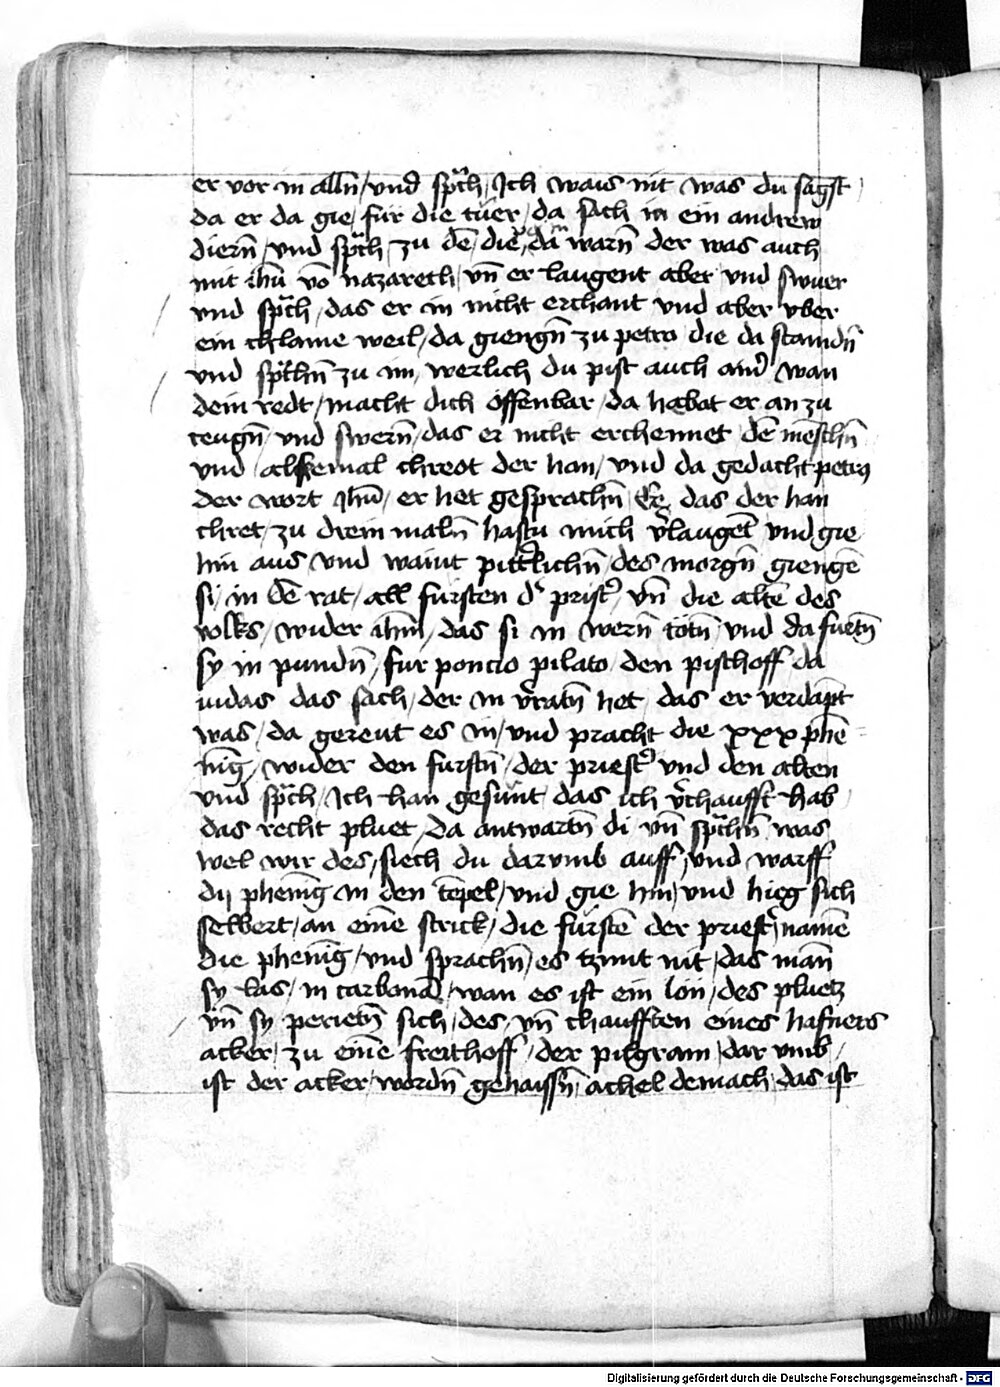 er vor in alln̄ / und sprach / Ich wais nit was du sagst /
da er da gie / für die tüer / da sach in ein andrew
diern̄ / und sprach / zu dē / die da warn̄ der was auch
mit ihū vō nazareth / vn̄ er laugent aber und swuer
vnd sprach / das er in nicht erchant vnd aber vber
ein chlaine weil / da giengn̄ zu petro die da standn̄
vnd sprachn̄ zu im / werlich du pist auch ainer wan
dein redt / macht dich offenbar / da hebat er an zu
leugn̄ / vnd swern̄ / das er nicht erchennet dē mēschn̄
vnd chreot der han / vnd da gedacht petrus
der wort ihū / er het gesprachn̄ das der han
chret / zu drein maln̄ hastu mich v̄laugēt vnd gie
hin aus / vnd waint pittlichn̄ / des morgn̄ giengē
si / in dē rat / all fursten der prister / vn̄ die altē des
volks / wider ihm̄ / das si in wern̄ tötn̄ / vnd da fuetn̄
sy in pundn̄ / fur poncio pilato / den pischoff / da
iudas das sach / der in v̄ratn̄ het / das er verdāpt
was / da gereut es in / vnd pracht die xxx phē
nīg / wider den furstn̄ / der priester vnd den alten
vnd sprach / Ich han gesünt / das ich v̄chaufft hab /
das recht pluet / da antwartn̄ di vn̄ sprachn̄ was
wel wir des / siech du darvmb auff / vnd warff
dij phenīg in den tēpel / vnd gie hin / vnd hieg sich
selbert / an einē strick / die fürstē der priester namē
die phenīg / vnd sprachn̄ / es tzimt nit / das man̄
sy las / in carbonā / wan es ist ein lon / des pluetz
vn̄ sy perietn̄ sich / des / vn̄ chaufften eines hafners
acker / zu einē freithoff / der pilgram / dar vmb /
ist der acker / wordn̄ gehaissn̄ / achel demach / das ist
Digitalisierung gefördert durch die Deutsche Forschungsgemeinschaft - DFG